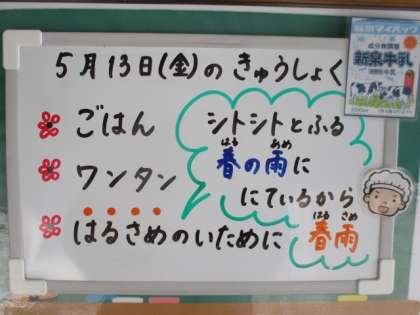 5月13日(金)のきゅうしょく
ごはん
ワンタン
はるさめのいために
シトシトとふる
はる あめ
春の雨に
にているから
はる さめ
春雨
成分無調整
新泉牛乳